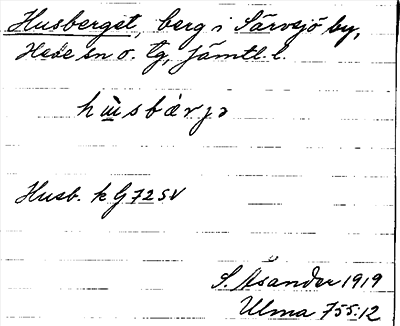 Husberget, berg i Särvsjö by,
Hede sn o. tg, Jämtl. l.
hùsbærjə
Husb. k G 72 SV
S. Åsander 1919
Ulma 755:12